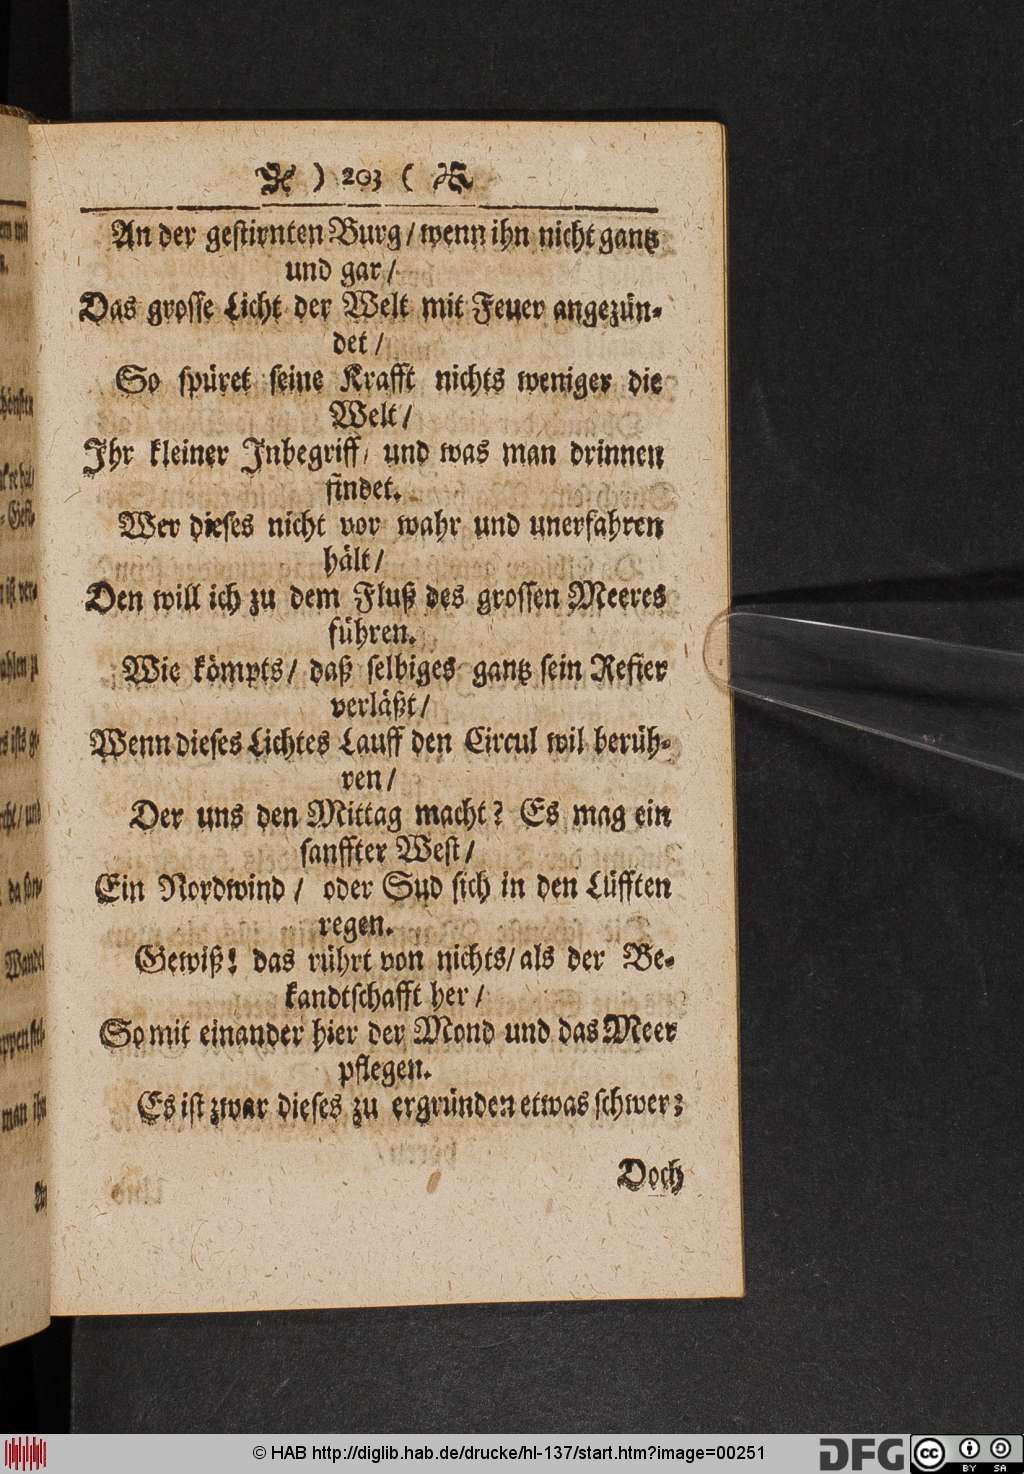 ) 203 (
An der gestirnten Burg / wenn ihn nicht gantz
und gar /
Das grosse Licht der Welt mit Feuer angezün-
det /
So spüret seine Krafft nichts weniger die
Welt /
Ihr kleiner Inbegriff / und was man drinnen
findet.
Wer dieses nicht vor wahr und unerfahren
hält /
Den will ich zu dem Fluß des grossen Meeres
führen.
Wie kömpts / daß selbiges gantz sein Refier
verläßt /
Wenn dieses Lichtes Lauff den Circul wil berüh-
ren /
Der uns den Mittag macht? Es mag ein
sanffter West /
Ein Nordwind / oder Sud sich in den Lüfften
regen.
Gewiß! das rührt von nichts / als der Be-
kandtschafft her /
So mit einander hier der Mond und das Meer
pflegen.
Es ist zwar dieses zu ergründen etwas schwer;
Doch
© HAB http://diglib.hab.de/drucke/hl-137/start.htm?image=00251
DFG
cc
BY SA